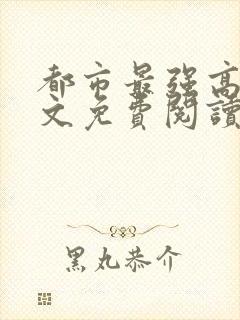 都市最强高
文免費閱讀
黑丸恭介